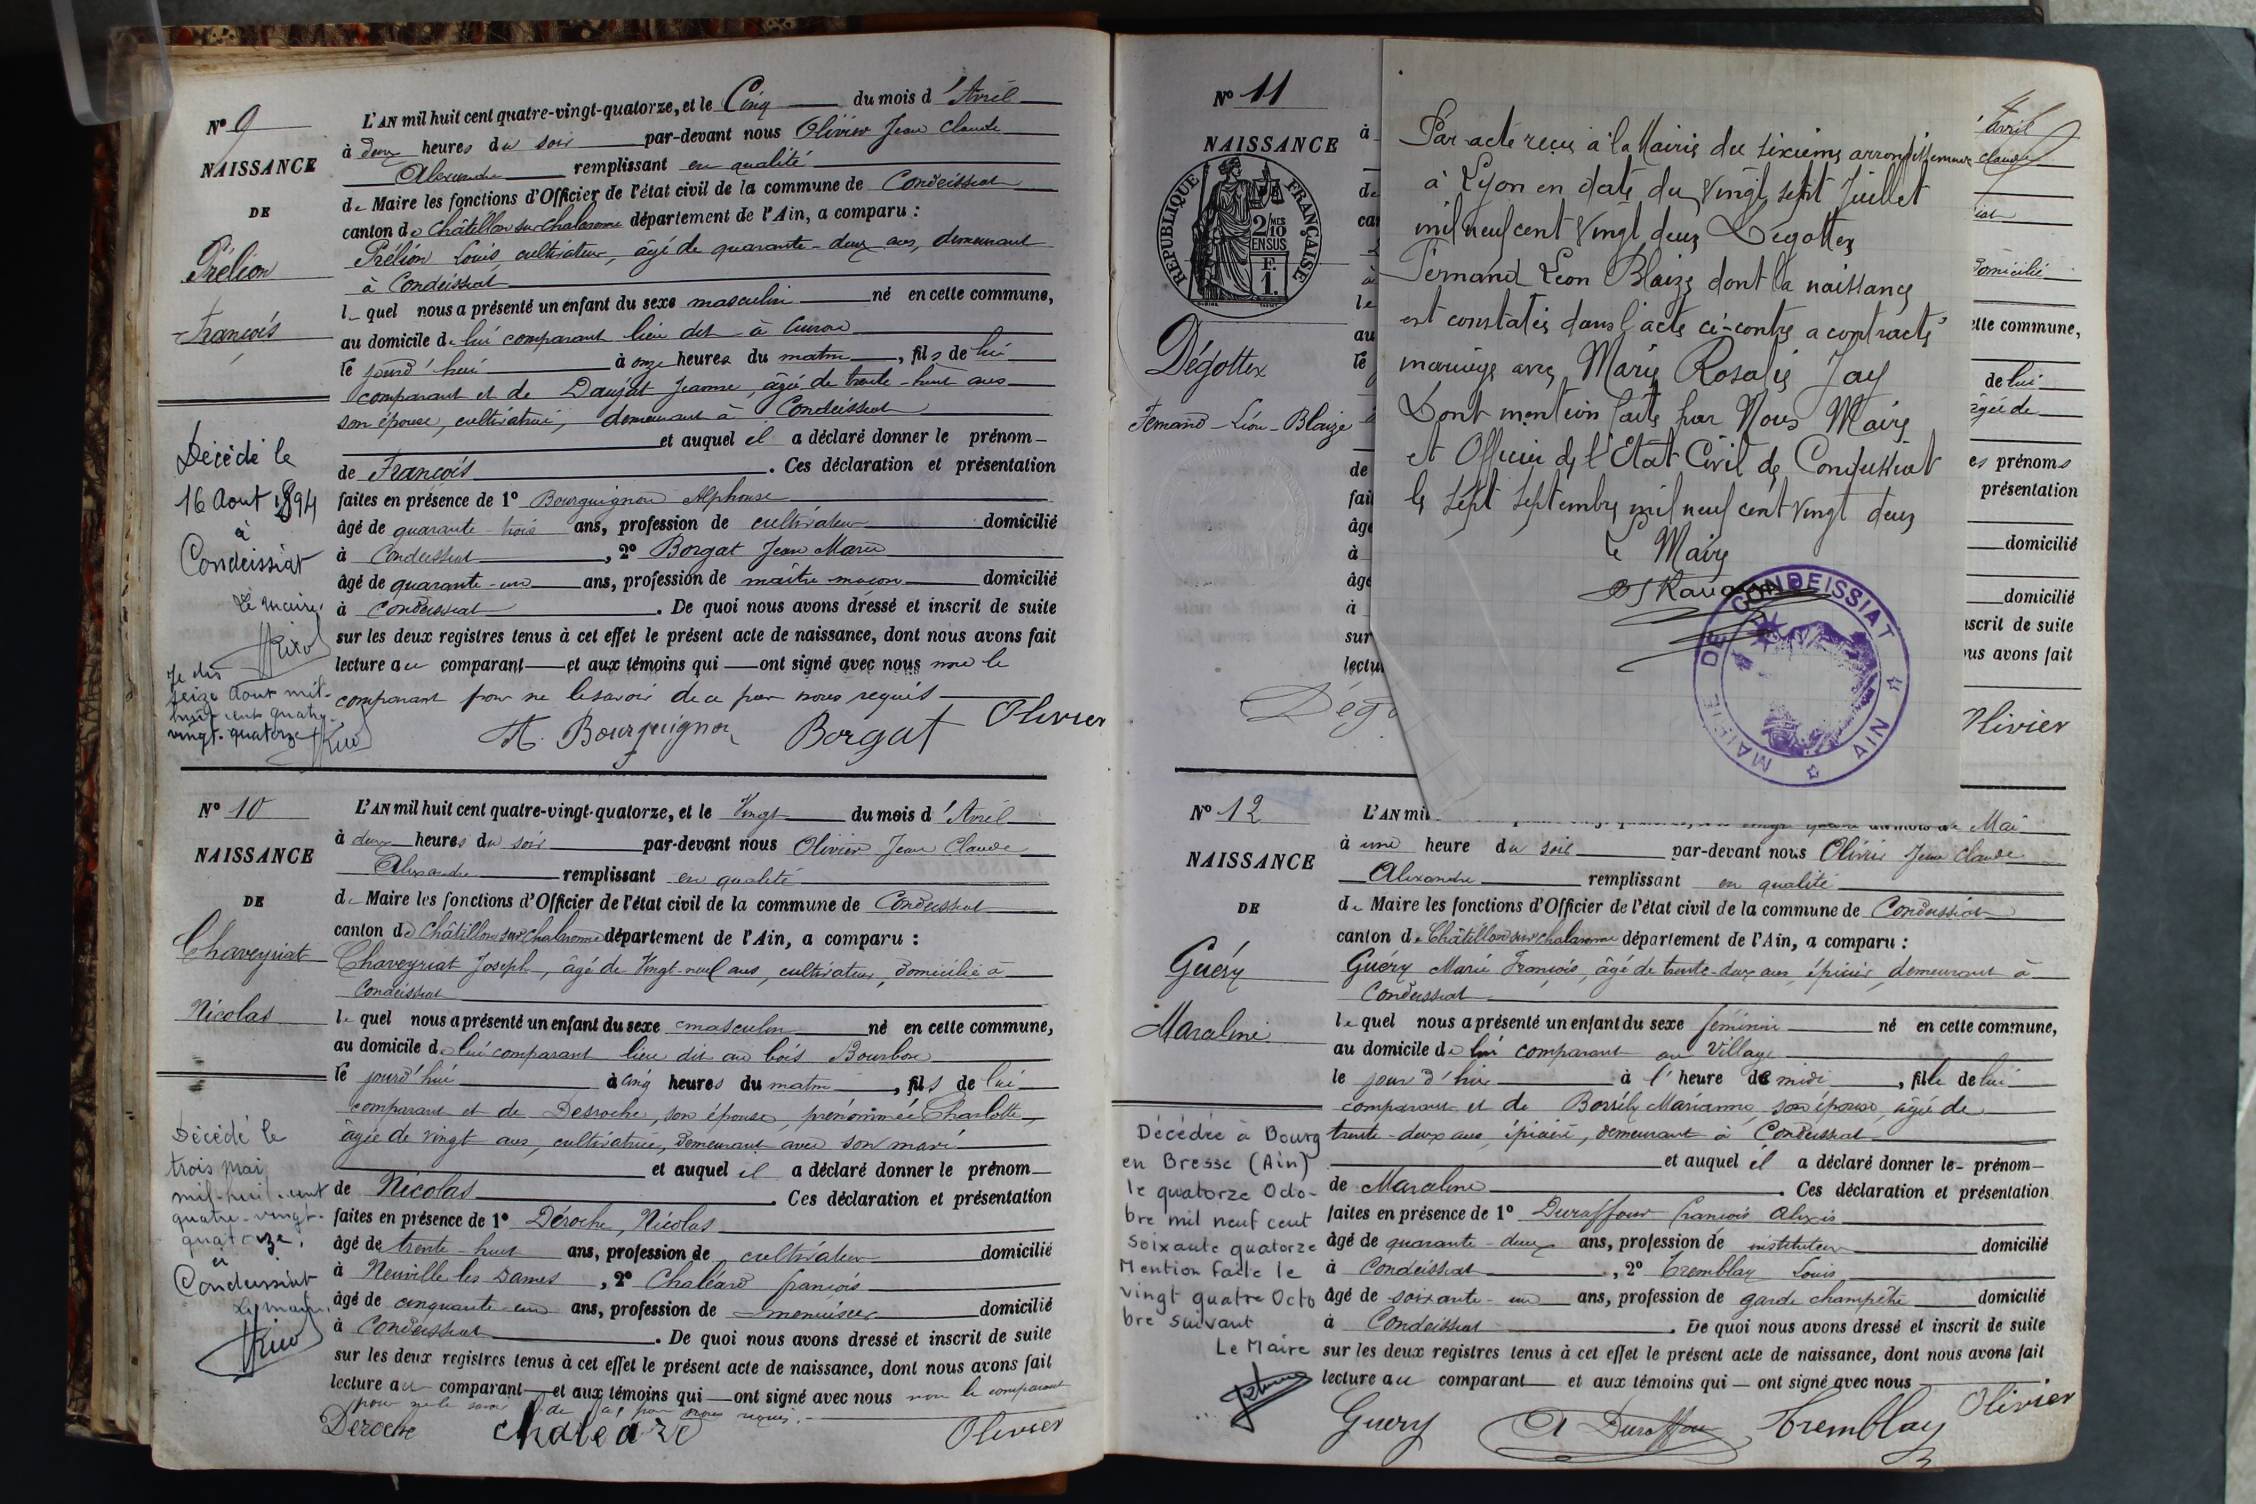 N° 9
NAISSANCE
DE
Prélion
François
Décédé le
16 Aout 1894
à
Condeissiat
Le maire,
Je dis
seize Aout mil-
huit cent quatre-
vingt-quatorze
L'AN mil huit cent quatre-vingt-quatorze, et le Cinq du mois d'Avril
à deux heures du soir par-devant nous Olivier Jean Claude
Alexandre remplissant en qualité
de Maire les fonctions d'Officier de l'état civil de la commune de Condeissiat
canton de Châtillon sur Chalaronne département de l'Ain, a comparu :
Prélion Louis cultivateur, âgé de quarante-deux ans, demeurant
à Condeissiat
lequel nous a présenté un enfant du sexe masculin né en cette commune,
au domicile de lui comparant lieu dit à
le jourd'hui à onze heures du matin, fils de lui
comparant et de Daujat Jeanne, âgée de trente-huit ans
son épouse, cultivatrice, demeurant à Condeissiat
et auquel il a déclaré donner le prénom
de François. Ces déclaration et présentation
faites en présence de 1° Bourguignon Alphonse
âgé de quarante-trois ans, profession de cultivateur domicilié
à Condeissiat, 2° Borgat Jean Marie
âgé de quarante-un ans, profession de maître maçon domicilié
à Condeissiat. De quoi nous avons dressé et inscrit de suite
sur les deux registres tenus à cet effet le présent acte de naissance, dont nous avons fait
lecture au comparant et aux témoins qui ont signé avec nous non le
comparant pour ne le savoir de ce par nous requis
A. Bourguignon Borgat Olivier
N° 10
NAISSANCE
DE
Chaveyriat
Nicolas
Décédé le
trois mai
mil-huit-cent
quatre-vingt-
quatorze,
à
Condeissiat
Le maire,
L'AN mil huit cent quatre-vingt-quatorze, et le Vingt du mois d'Avril
à deux heures du soir par-devant nous Olivier Jean Claude
Alexandre remplissant en qualité
de Maire les fonctions d'Officier de l'état civil de la commune de Condeissiat
canton de Châtillon sur Chalaronne département de l'Ain, a comparu :
Chaveyriat Joseph, âgé de Vingt-neuf ans, cultivateur, domicilié à
Condeissiat
lequel nous a présenté un enfant du sexe masculin né en cette commune,
au domicile de lui comparant lieu dit au bois Bourbon
le jourd'hui à cinq heures du matin, fils de lui
comparant et de Desroche, son épouse, prénommée Charlotte,
âgée de vingt ans, cultivatrice, demeurant avec son mari
et auquel il a déclaré donner le prénom
de Nicolas. Ces déclaration et présentation
faites en présence de 1° Déroche, Nicolas
âgé de trente-huit ans, profession de cultivateur domicilié
à Neuville les Dames, 2° Chaléard françois
âgé de cinquante-un ans, profession de menuisier domicilié
à Condeissiat. De quoi nous avons dressé et inscrit de suite
sur les deux registres tenus à cet effet le présent acte de naissance, dont nous avons fait
lecture au comparant et aux témoins qui ont signé avec nous non le comparant
pour ne le savoir de ce par nous requis.
Deroche chaleard Olivier
N° 11
NAISSANCE
RÉPUBLIQUE FRANÇAISE
2/10 MES
EN SUS
F.
1.
Dégottex
Fernand-Léon-Blaize
à
de
le
au
le
de
fai
âgé
à
âgé
à
sur
lectu
Dég
Par acte reçu à la Mairie du sixième arrondissement
à Lyon en date du vingt sept Juillet
mil neuf cent vingt deux Dégottex
Fernand Léon Blaize dont la naissance
est constatée dans l'acte ci-contre a contracté
mariage avec Marie Rosalie Jay
Dont mention faite par Nous Maire
et Officier de l'Etat Civil de Condeissiat
le sept septembre mil neuf cent vingt deux
Le Maire
MAIRIE DE CONDEISSIAT
AIN
avril
claude
domicilié
ette commune,
de lui
âgée de
es prénoms
présentation
domicilié
domicilié
nscrit de suite
ous avons fait
Olivier
N° 12
NAISSANCE
DE
Guéry
Maraline
Décédée à Bourg
en Bresse (Ain)
le quatorze Octo-
bre mil neuf cent
soixante quatorze
Mention faite le
vingt quatre Octo
bre suivant
Le Maire
L'AN mil Mai
à une heure du soir par-devant nous Olivier Jean Claude
Alexandre remplissant en qualité
de Maire les fonctions d'Officier de l'état civil de la commune de Condeissiat
canton de Châtillon sur Chalaronne département de l'Ain, a comparu :
Guéry Marie François, âgé de trente-deux ans, épicier, demeurant à
Condeissiat
lequel nous a présenté un enfant du sexe féminin né en cette commune,
au domicile de lui comparant au Village
le jour d'hui à l'heure de midi, fille de lui
comparant et de Marianne, son épouse, âgée de
trente-deux ans, épicière, demeurant à Condeissiat
et auquel il a déclaré donner le prénom
de Maraline. Ces déclaration et présentation
faites en présence de 1° Duraffour françois Alexis
âgé de quarante-deux ans, profession de instituteur domicilié
à Condeissiat, 2° Tremblay Louis
âgé de soixante-un ans, profession de garde champêtre domicilié
à Condeissiat. De quoi nous avons dressé et inscrit de suite
sur les deux registres tenus à cet effet le présent acte de naissance, dont nous avons fait
lecture au comparant et aux témoins qui ont signé avec nous
Guery A Duraffour Tremblay Olivier